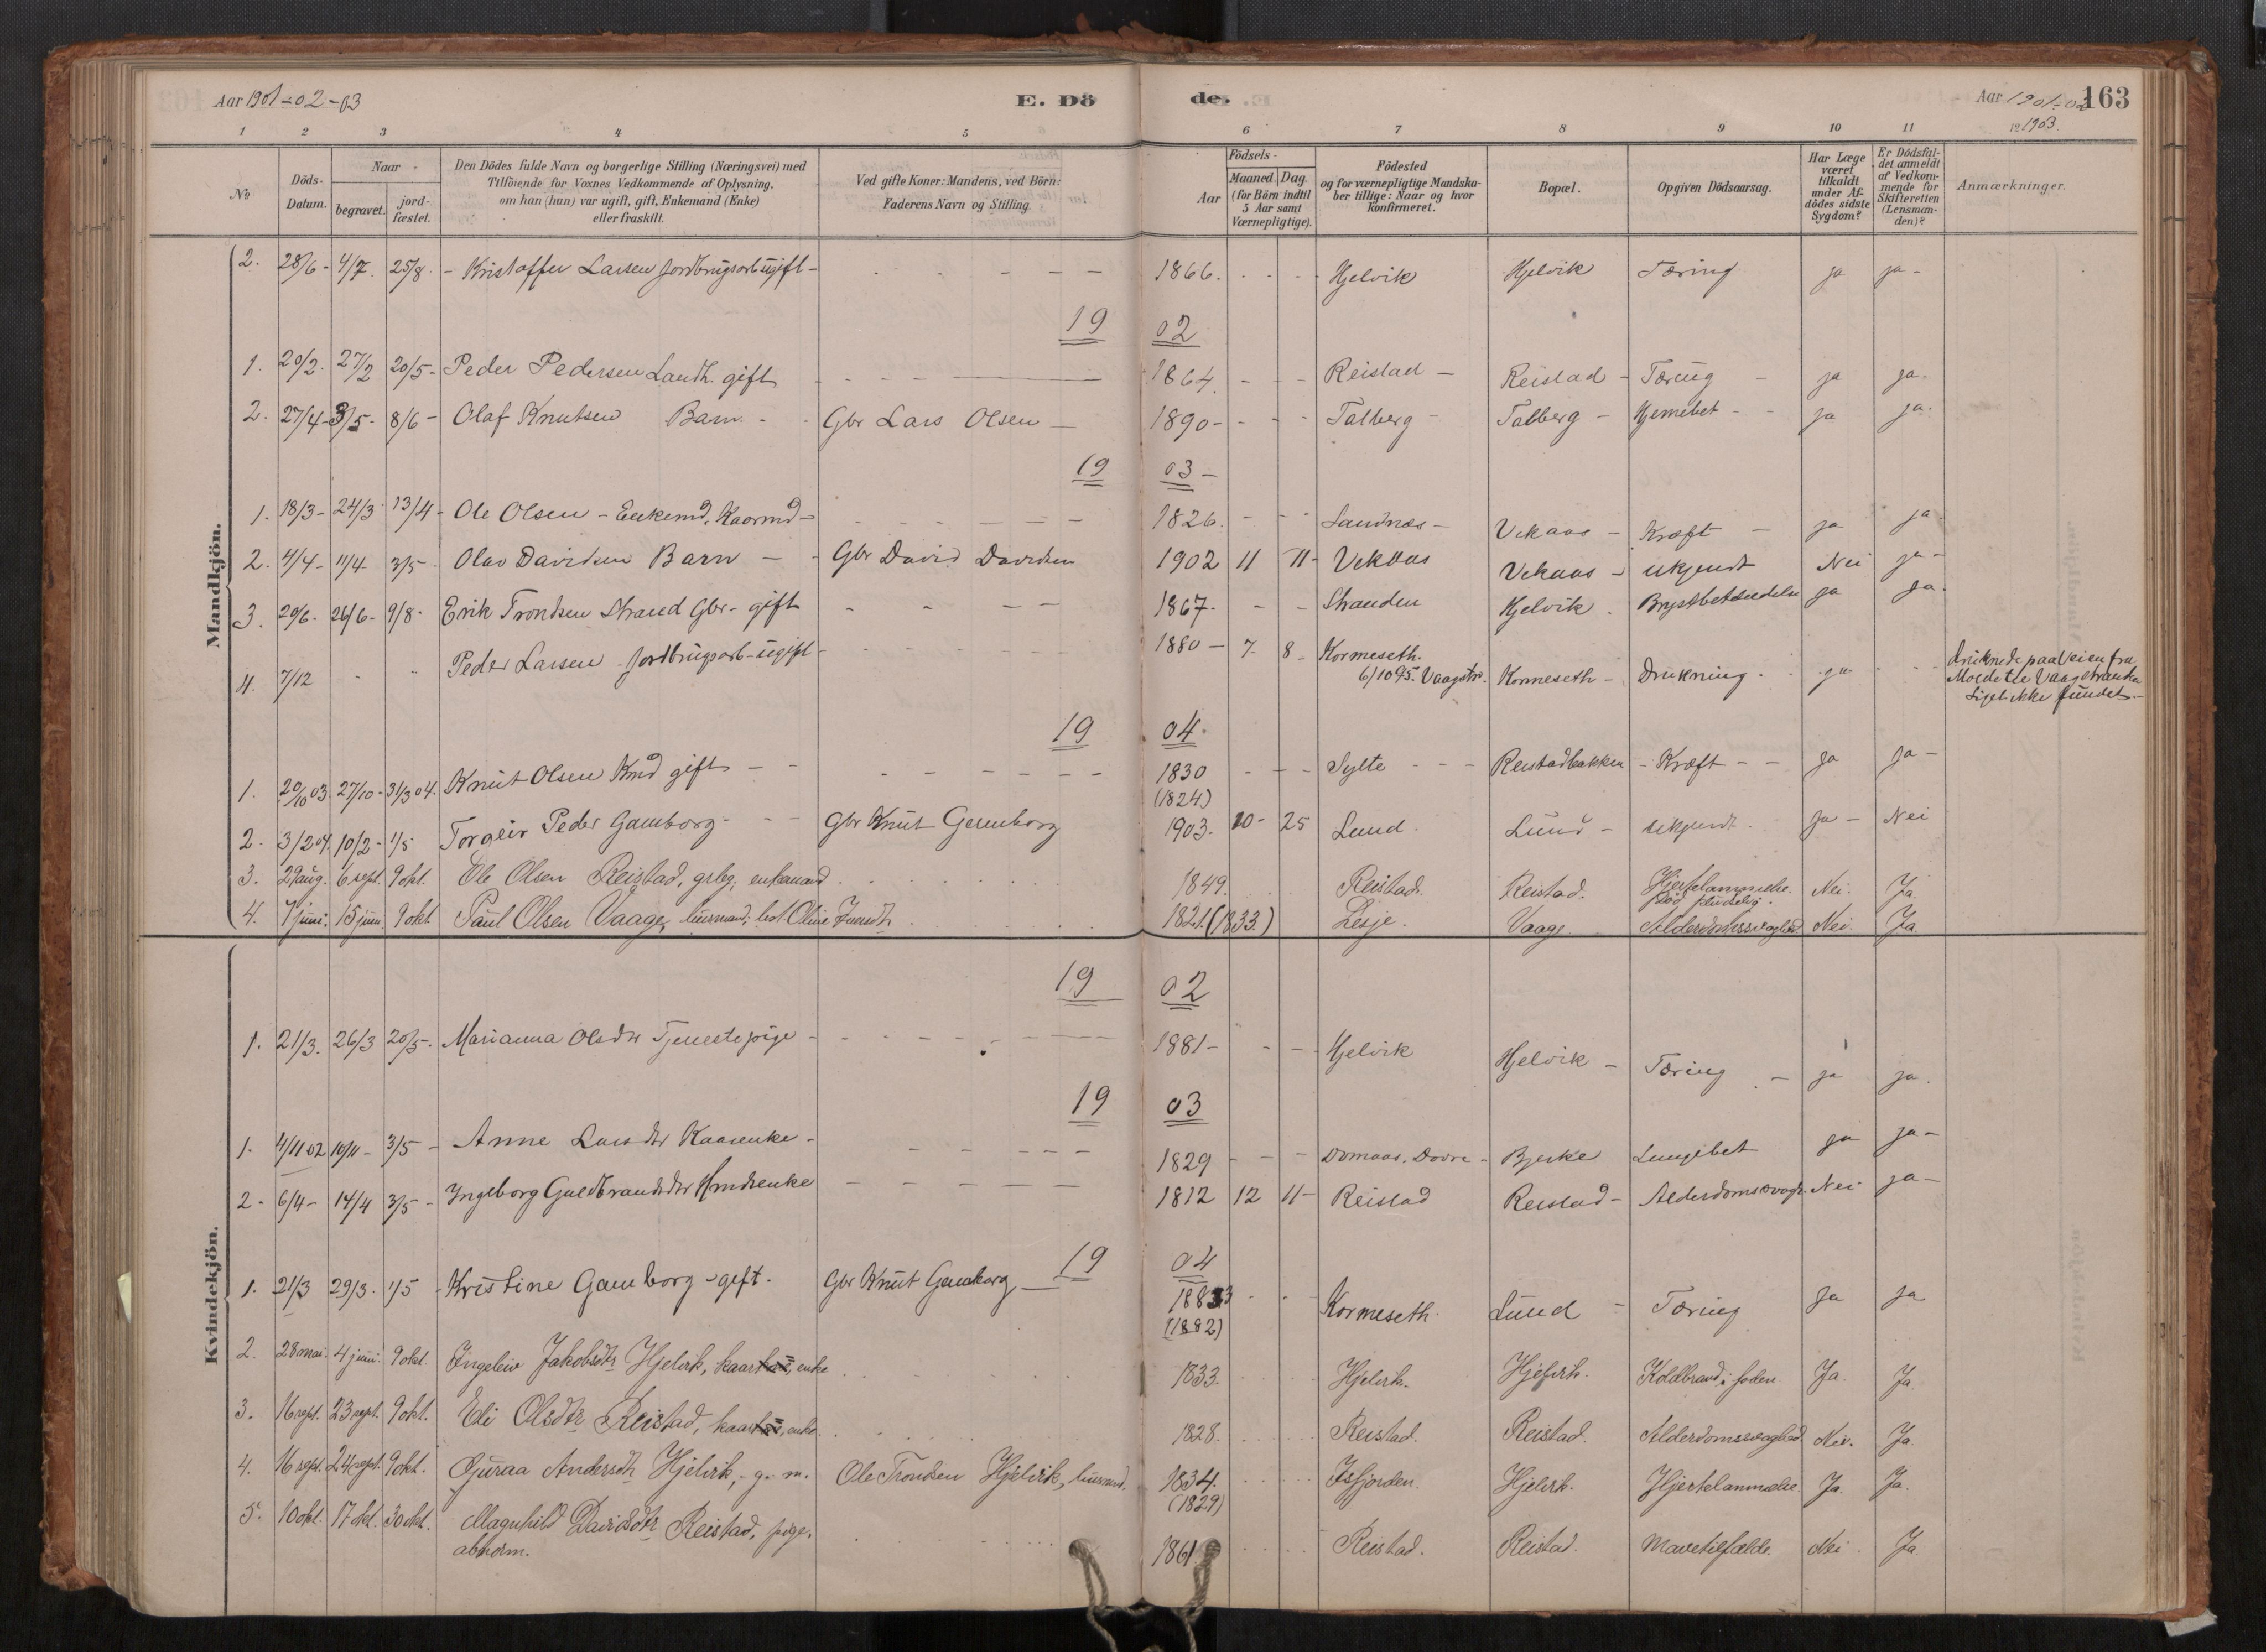 Aar 1901-02-03 E. Dö de. Aar 1901-02 163
1903.
1 2 3 4 5 6 7 8 9 10 11 12
No. Döds-Datum. Naar begravet. jordfæstet. Den Dödes fulde Navn og borgerlige Stilling (Næringsvei) med Tilföiende for Voxnes Vedkommende af Oplysning, om han (hun) var ugift, gift, Enkemand (Enke) eller fraskilt. Ved gifte Koner: Mandens, ved Börn: Faderens Navn og Stilling. Födsels- Aar Maaned. Dag. (for Börn indtil 5 Aar samt Værnepligtige). Födested og for værnepligtige Mandskaber tillige: Naar og hvor konfirmeret. Bopæl. Opgiven Dödsaarsag. Har Læge været tilkaldt under Afdödes sidste Sygdom? Er Dödsfaldet anmeldt af Vedkommende for Skifteretten (Lensmanden)? Anmærkninger.
Mandkjön.
2. 28/6- 4/7. 25/8. - Kristoffer Larsen Jordbrugsarb ugift - 1866. Hjelvik Hjelvik Tæring ja ja -
19 02
1. 20/2. 27/2 20/5- Peder Pedersen Landh. gift 1864. Reistad - Reistad - Tæring - ja ja.
2. 27/4- 3/5- 8/6- Olaf Knutsen Barn - Gbr Lars Olsen - 1890- Talberg - Talberg - Hjernebet - ja ja.
19 03 -
1. 18/3- 24/3 13/4- Ole Olsen - Enkemd, Kaarmd - 1826. Landnæs - Vekaas - Kræft - ja ja
2. 4/4- 11/4 3/5- Olav Davidsen Barn - Gbr David Davidsen 1902 11 11- Vekaas Vekaas - ukjendt Nei ja -
3. 20/6. 26/6- 9/8- Erik Trondsen Strand Gbr- gift 1867. Stranden Hjelvik. Brystbetændelse ja ja.
4. 7/12 Peder Larsen Jordbrugsarb-ugift - 1880 - 7. 8 - Kormeseth. 6/10 95. Vaagstr. Kormeseth - Drukning. ja druknede paa Veien fra Molde til Vaagstranden Liget ikke fundet -
19 04.
1. 20/10 03. 27/10- 31/3 04. Knut Olsen Kmd gift - - 1830 (1824) Sylte - - - Reistadbakken - Kræft - - ja ja -
2. 3/2 04. 10/2- 1/5 Torgeir Peder Gamborg - - Gbr Knut Gamborg 1903. 10- 25 Lund. Lund - ukjendt. ja - Nei
3. 29 aug. 6 sept. 9 okt. Ole Olsen Reistad, enkemand 1849. Reistad. Reistad. Hjertelammelse. Död pludselig. Nei. Ja.
4. 7 juni. 15 juni. 9 okt. Paul Olsen Vaage, husmand; 1821. (1833.) Lesje. Vaage Alderdomssvaghed Nei. Ja
Kvindekjön.
19 02
1. 21/3. 26/3 20/5-. Marianna Olsdtr Tjenestepige - 1881- Hjelvik Hjelvik - Tæring - ja ja.
19 03
1. 4/11 02 10/11- 3/5 - Anne Larsdtr Kaarenke - 1829 - - - Domaas, Dovre - Bjerke Lungebet ja ja -
2- 6/4- 14/4 3/5 - Ingeborg Guldbrandsdtr Hmdsenke 1812 12 11- Reistad Reistad - Alderdomssvagh. Nei ja -
19 04
1. 21/3 29/3. 1/5 - Kristine Gamborg - gift. Gbr Knut Gamborg - 1883 (1882) Kormeseth. Lund - Tæring ja ja
2. 28 mai. 4 juni. 9 okt. Ingeleiv Jakobsdtr Hjelvik, kaarenke 1833. Hjelvik. Hjelvik. Koldbrand i foden Ja. Ja.
3. 16 sept. 23 sept. 9 okt. Eli Olsdtr Reistad, kaarenke. 1828. Reistad. Reistad. Alderdomssvaghed Nei. Ja.
4. 16 sept. 24 sept. 9 okt. Gjuraa Andersdtr Hjelvik, g. m. Ole Trondsen Hjelvik, husmand. 1834. (1829) Isfjorden. Hjelvik. Hjertelammelse. Ja. Ja.
5. 10 okt. 17 okt. 30 okt. Magnhild Davidsdtr Reistad, pige. 1861 Reistad. Reistad. Mavetilfælde. Nei. Ja.
abnorm.